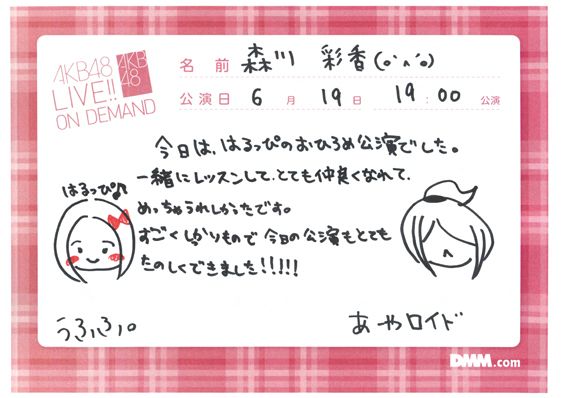 AKB48
LIVE!!
ON DEMAND
AKB
48
名 前 森川 彩香(o'ʌ'o)
公演日 6月 19日 19:00 公演
今日は、はるっぴのおひろめ公演でした。
一緒にレッスンして、とても仲良くなれて、
めっちゃうれしかったです。
すごくしっかりもので今日の公演もとても
たのしくできました!!!!!
はるっぴ♪
うふふ。
あやロイド
DMM.com